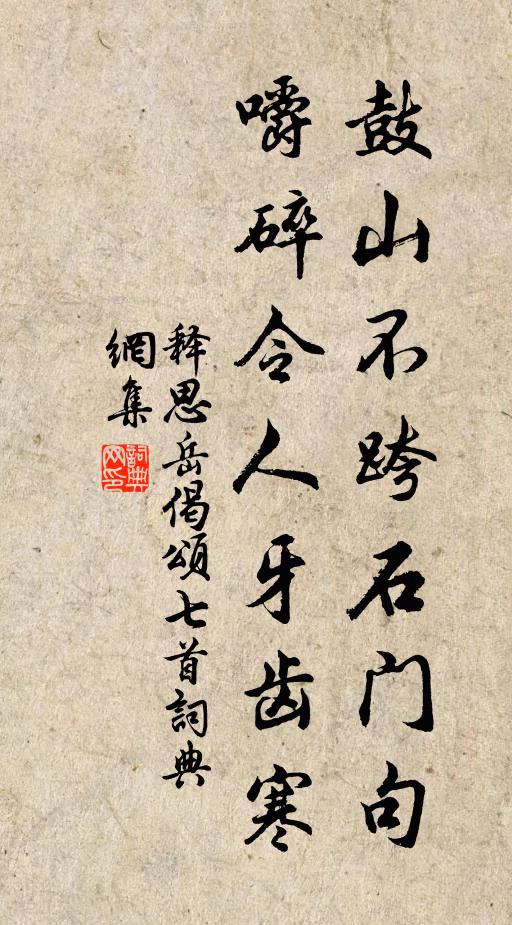 鼓山不跨石门句
嚼碎令人牙齿寒
释思岳偈颂七首詞典
網集
詞典網印